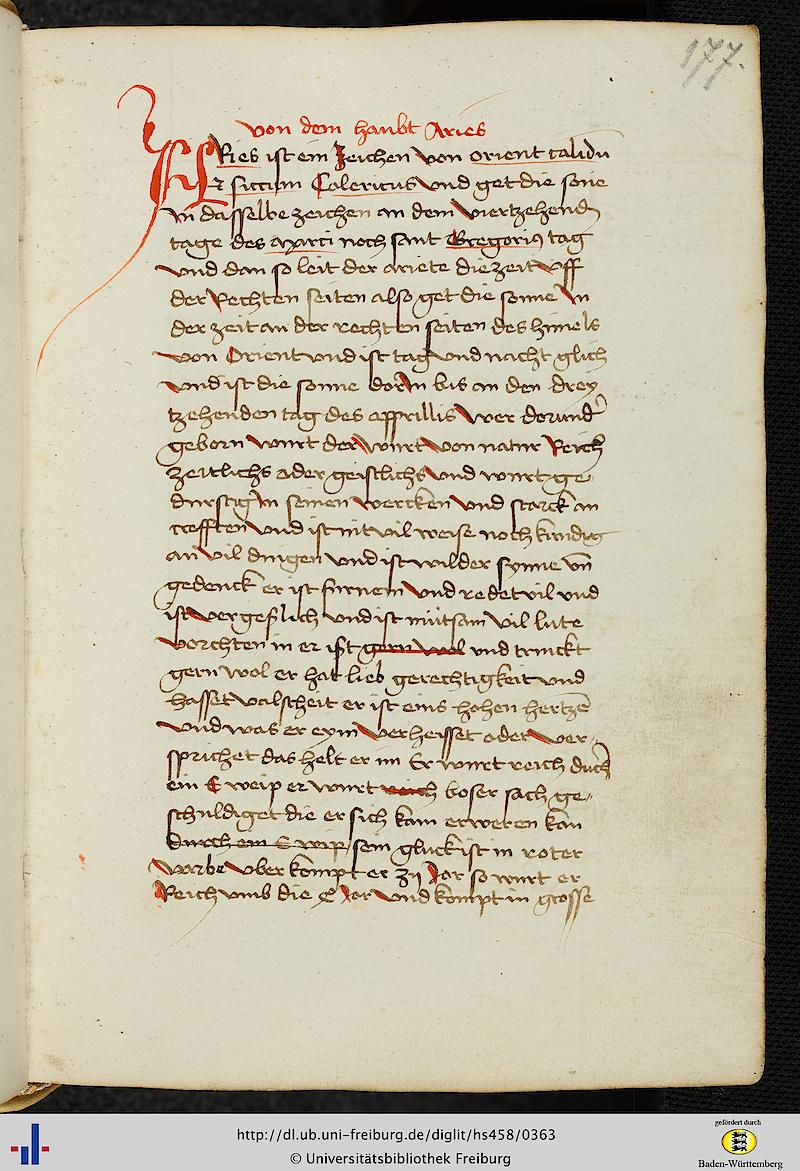 177.
von dem haubt Aries
ARies ist ein Zeichen von orient calidū
⁊ siccum Colericus vnd get die sone
in dasselbe zeichen an dem viertzehend
tage des marci noch sant Gregoriꝰ tag
vnd dan so leit der ariete die zeit vff
der Rechten seiten also get die sonne in
der zeit an der rechten seiten des himels
von Orient vnd ist tag vnd nacht glich
vnd ist die sonne dorin bis an den drey
tzehenden tag des apprillis wer dorund
geborn wurt der wurt von natur Reich
zeitlichs ader geistlichs vnd wurt ge
durstig in seinen wercken vnd starck an
crefften vnd ist nit vil weise noch kundig
an vil dingen vnd ist wilder synne vn̄
gedenck er ist furnem vnd redet vil vnd
ist vergeßlich vnd ist mütsam vil lute
vorchten in er ißt gern wol vnd trinckt
gern wol er hat lieb gerechtigkeit vnd
hasset valscheit er ist eins hohen hertzē
vnd was er eym verheisset oder ver
sprichet das helt er im Er wurt reich durch
ein E weip er wurt reich boser sach ge
schuldiget die er sich kam erweren kan
durch ein E wip sein gluck ist in roter
varbe vber kompt er zij Jar so wurt er
Reich vmb die Jar vnd kompt in grosse
http://dl.ub.uni-freiburg.de/diglit/hs458/0363
© Universitätsbibliothek Freiburg
gefördert durch
Baden-Württemberg